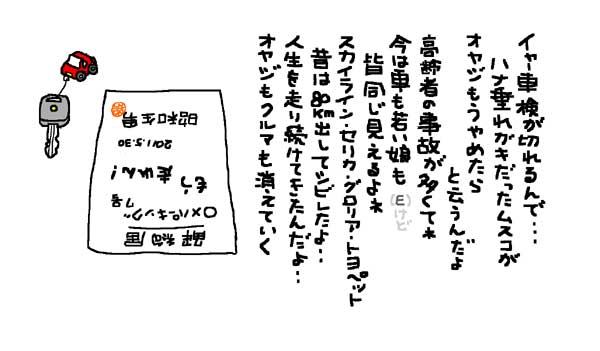 イャー車検が切れるんで・・・
ハナ垂れガキだったムスコが
オヤジもうやめたら
と云うんだよ
高齢者の事故が多くてネ
今は車も若い娘も
(E)けど
皆同じ見えるよネ
スカイライン・セリカ・グロリア・トヨペット
昔は80Km出してシビレたよ‥
人生を走り続けてきたんだよ‥
オヤジもクルマも消えていく
解約届
○×パーキング
7号
もう
走れん!
2011.5.30
昭和生男